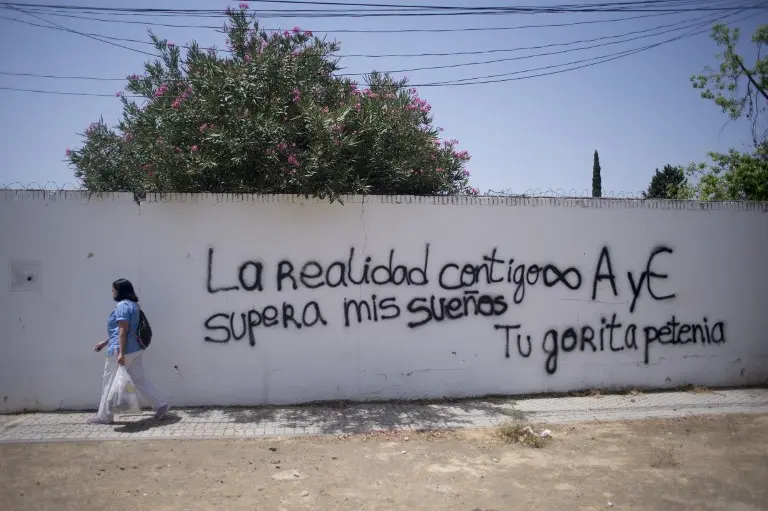 La realidad contigo ∞ A y E
supera mis sueños
Tu gorita petenia